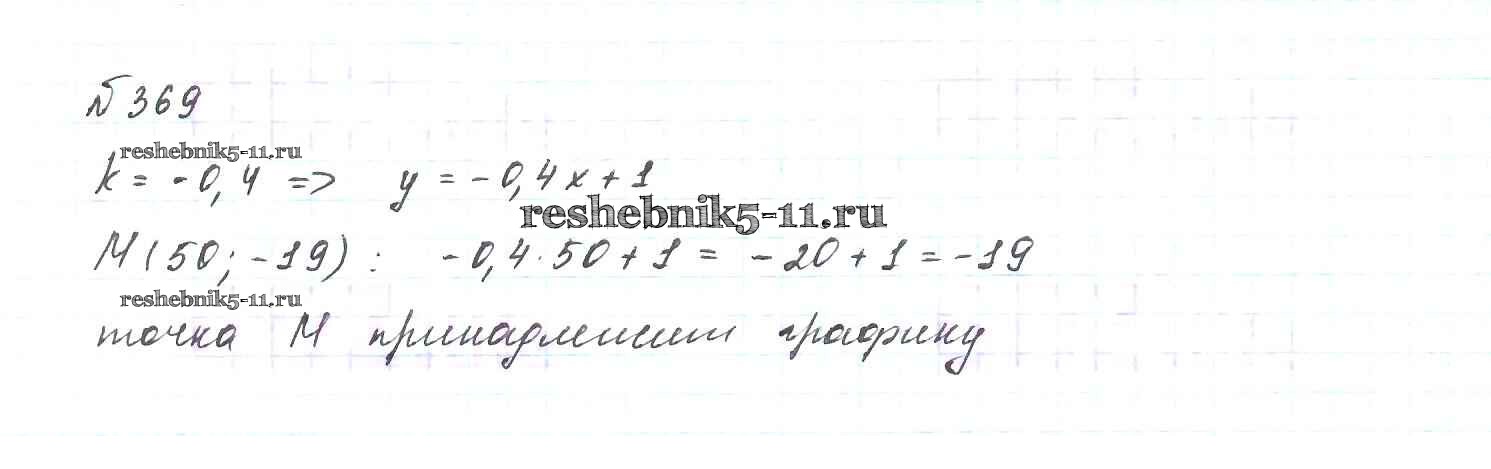 № 369
reshebnik5-11.ru
k = -0,4 => y = -0,4x + 1
reshebnik5-11.ru
M(50; -19) : -0,4·50 + 1 = -20 + 1 = -19
reshebnik5-11.ru
точка M принадлежит графику